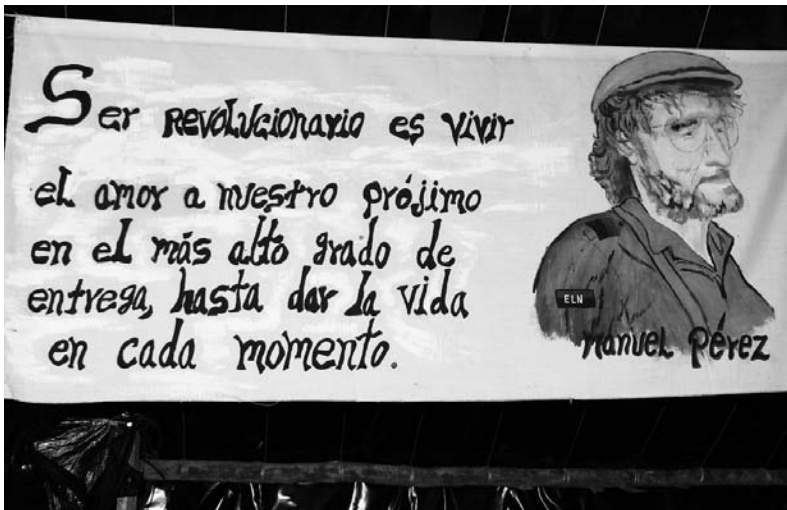 Ser REVOLUCIONARIO es vivir
el amor a nuestro prójimo
en el más alto grado de
entrega, hasta dar la vida
en cada momento.
ELN
Manuel Pérez